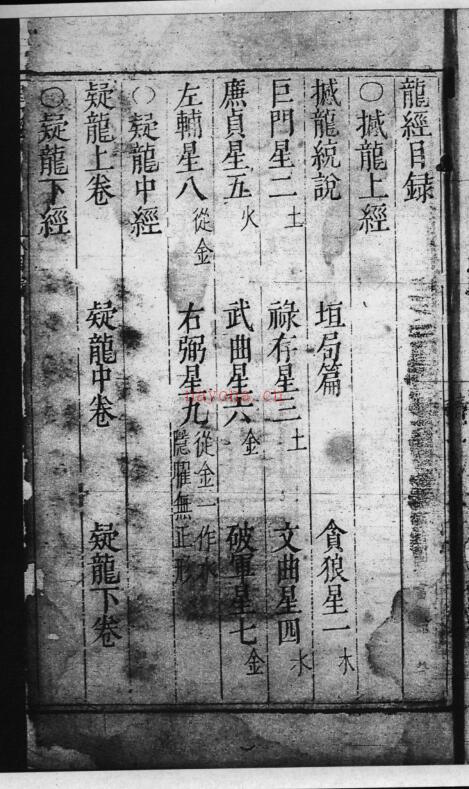 龍經目録
○撼龍上經
撼龍統説 垣局篇 貪狼星一 木
巨門星二 土 祿存星三 土 文曲星四 水
廉貞星五 火 武曲星六 金 破軍星七 金
左輔星八 從金 右弼星九 從金一作水 隱曜無正形
○疑龍中經
疑龍上卷 疑龍中卷 疑龍下卷
○疑龍下經